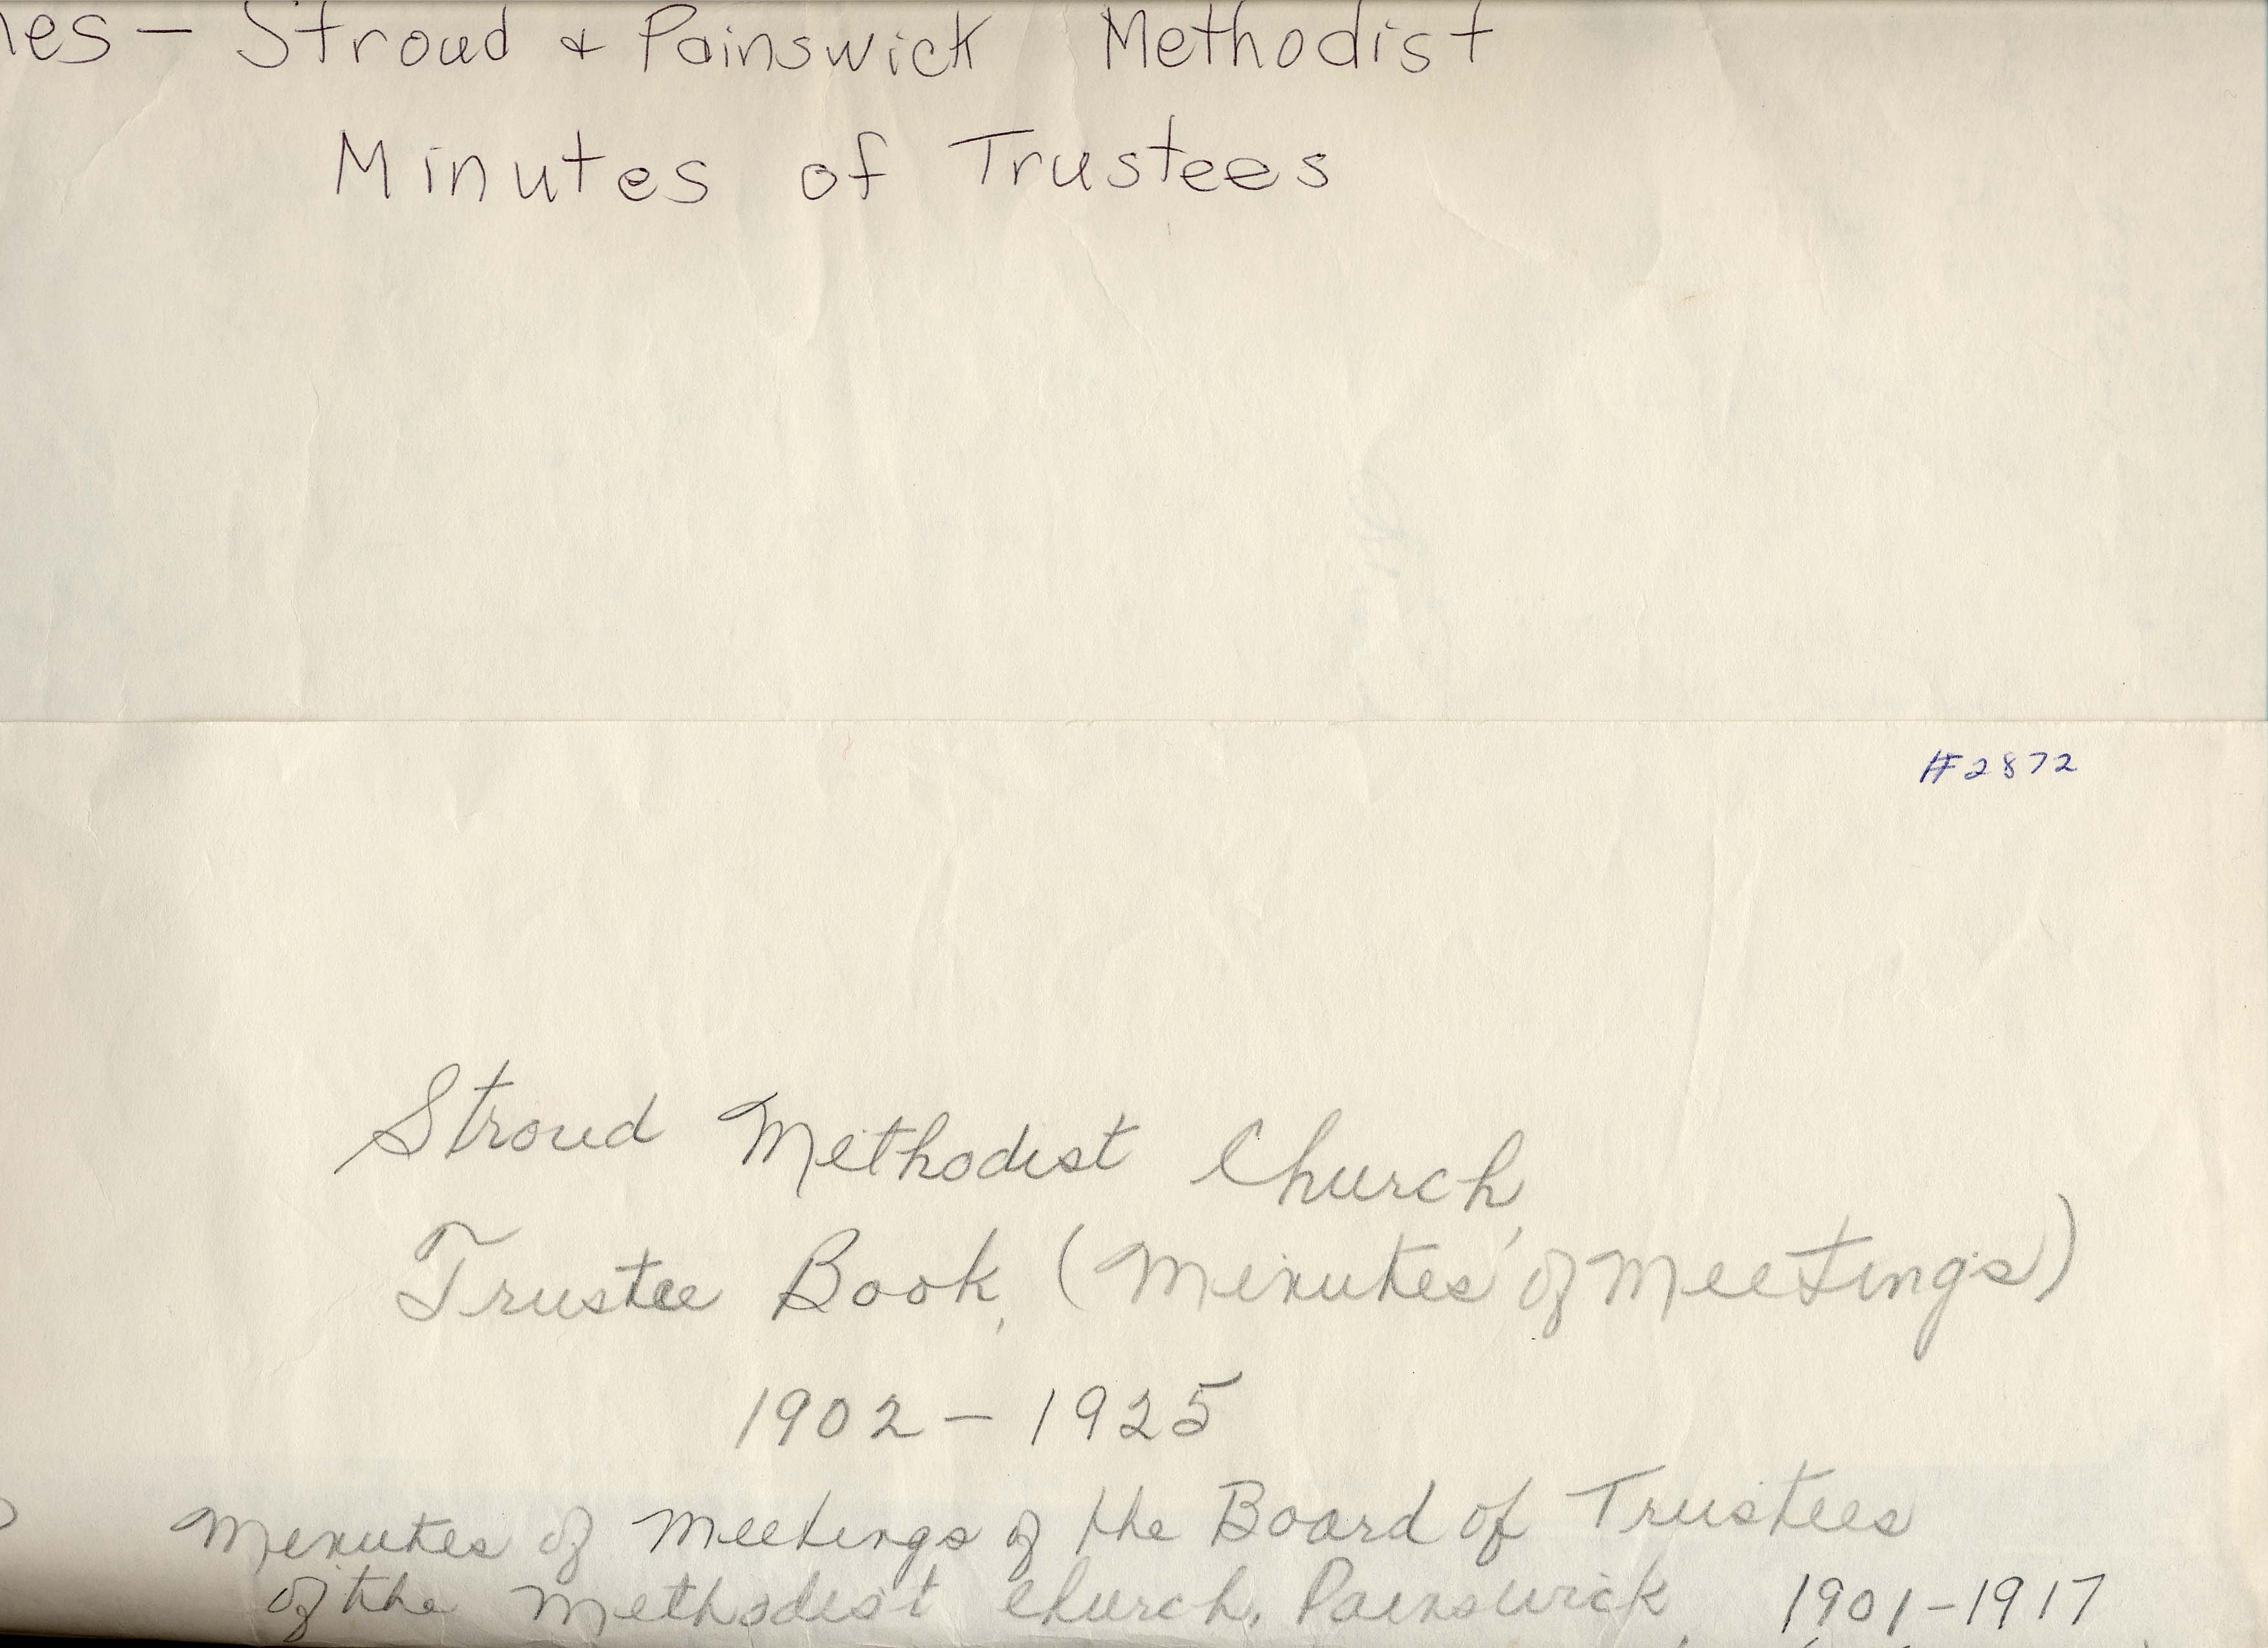 es — Stroud & Painswick Methodist
Minutes of Trustees
#2872
Stroud Methodist Church,
Trustee Book, (Minutes of Meetings)
1902 – 1925
Minutes of Meetings of the Board of Trustees
of the Methodist Church, Painswick, 1901–1917